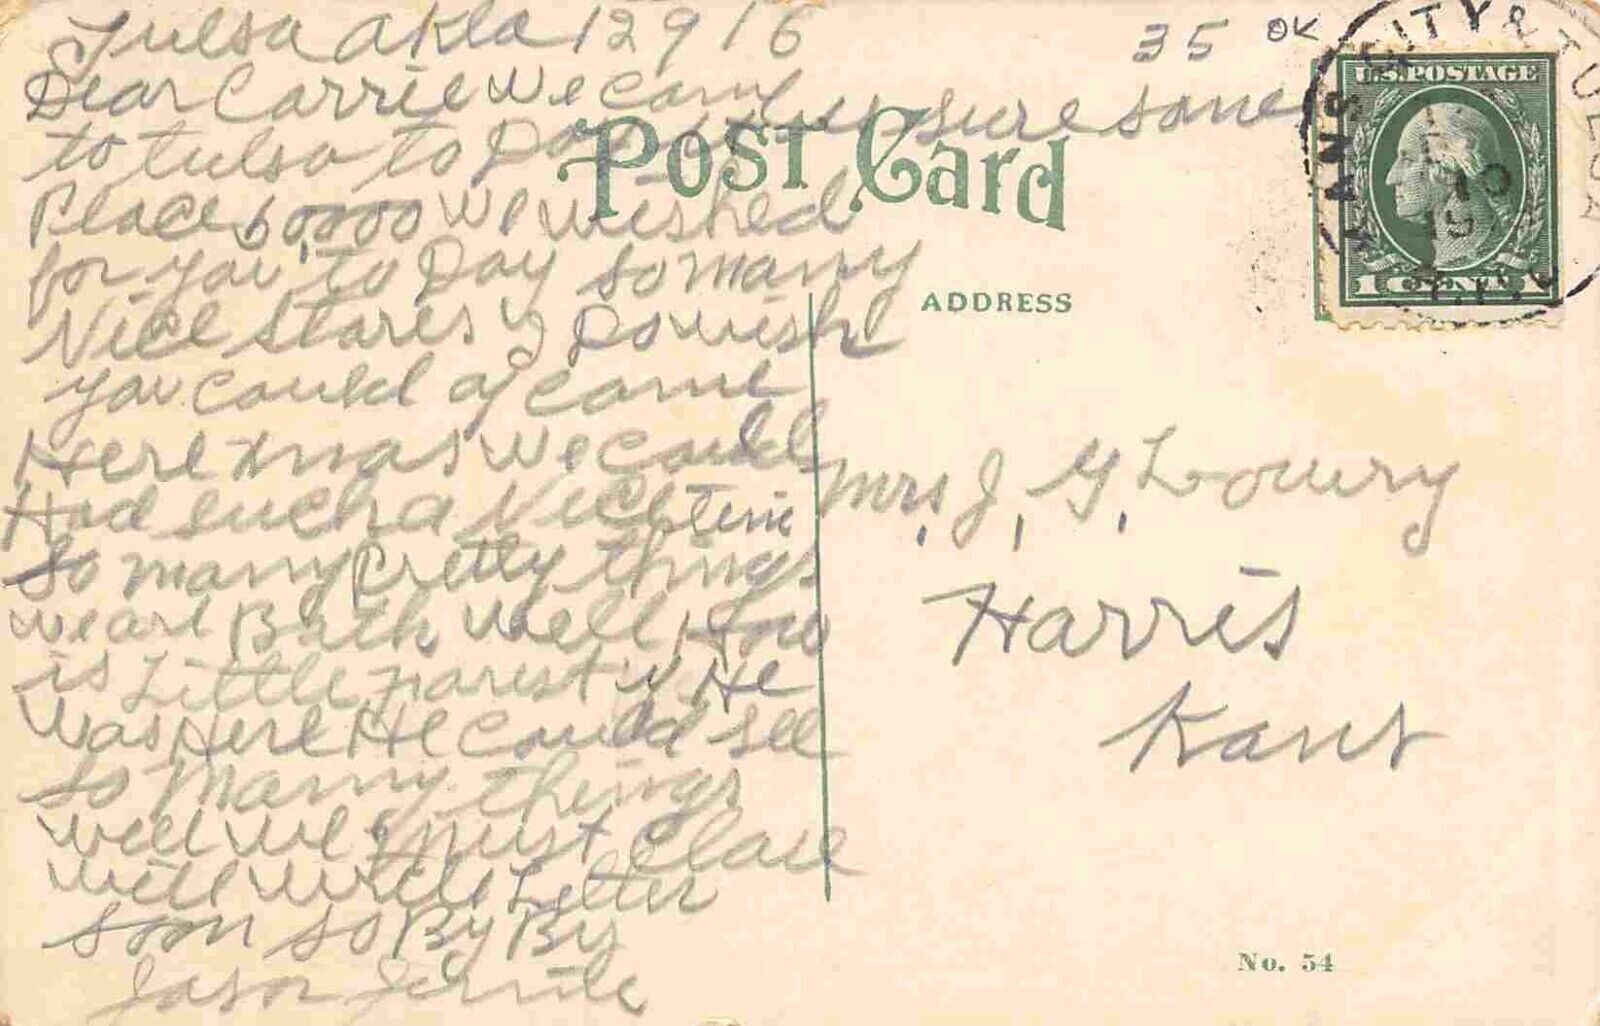 Tulsa Okla 12 9 16
Dear Carrie we came
to tulsa to Day sure some
Place 60,000 we wished
for you to Day so many
Nice Stores I Do wish
you could of came
Here Xmas we could
Had such a Nice Time
So many Pretty things
we are Both well How
is Little Forest if He
was Here He could see
so many things
well we must close
will write Letter
soon so By By
Jason
POST CARD
ADDRESS
35 OK
KANS CITY & TULSA
U.S. POSTAGE
1 CENT
Mrs. J. G. Lowery
Harris
Kans
No. 54